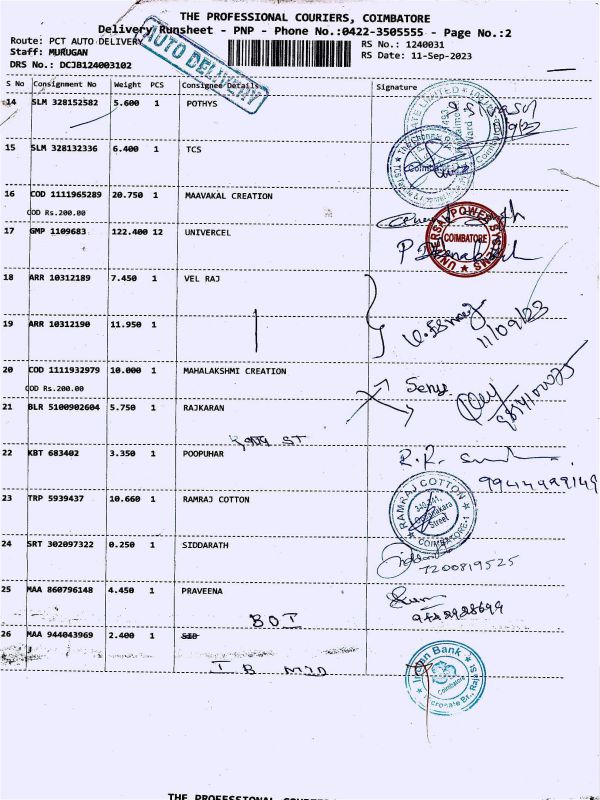 THE PROFESSIONAL COURIERS, COIMBATORE
Delivery Runsheet - PNP - Phone No.:0422-3505555 - Page No.:2
Route: PCT AUTO DELIVERY
RS No.: 1240031
Staff: MURUGAN
RS Date: 11-Sep-2023
DRS No.: DCJB124003102
AUTO DELIVERY
S No Consignment No Weight PCS Consignee Details Signature
14 SLM 328152582 5.600 1 POTHYS
15 SLM 328132336 6.400 1 TCS
16 COD 1111965289 20.750 1 MAAVAKAL CREATION
COD Rs.200.00
17 GMP 1109683 122.400 12 UNIVERCEL
UNIVERSAL POWER SYSTEMS
COIMBATORE
18 ARR 10312189 7.450 1 VEL RAJ
11/09/23
19 ARR 10312190 11.950 1
20 COD 1111932979 10.000 1 MAHALAKSHMI CREATION
COD Rs.200.00
21 BLR 5100902604 5.750 1 RAJKARAN
ST
22 KBT 683402 3.350 1 POOPUHAR
R.R.
23 TRP 5939437 10.660 1 RAMRAJ COTTON
RAMRAJ COTTON
Street
COIMBATORE-1
24 SRT 302097322 0.250 1 SIDDARATH
7200819525
25 MAA 860796148 4.450 1 PRAVEENA
BOI
26 MAA 944043969 2.400 1 SIB
I B
Indian Bank
Coimbatore
THE PROFESSIONAL COURIERS